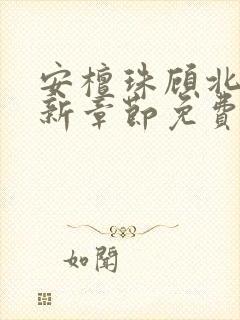 安檀珠顾北
新章節免費
如聞